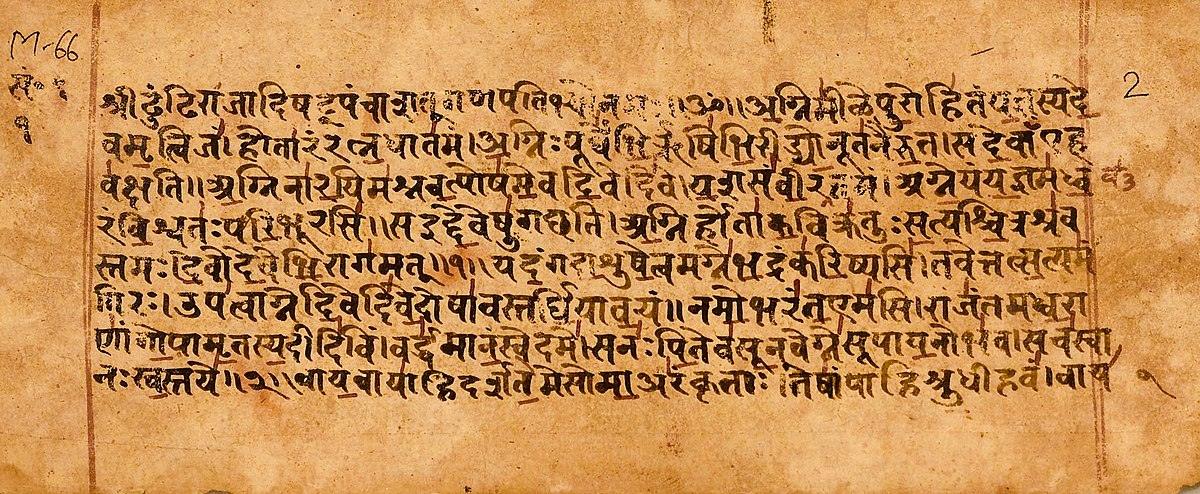 M-66
मं॰ १
१
2
श्रीढुंढिराजादिषट्पंचाशत् गणपति ॥ॐ॥ अग्निमीळेपुरोहितंयज्ञस्यदे
वमृत्विजं।होतारंरत्नधातमं।अग्निःपूर्वेभिर्ऋषिभिरीड्योनूतनैरुत।सदेवाꣳएह
वक्षति॥अग्निनारयिमश्नवत्पोषमेवदिवेदिवे।यशसंवीरवत्तमं।अग्नेयंयज्ञमध्व
रंविश्वतःपरिभूरसि॥सइद्देवेषुगछति।अग्निर्होताकविक्रतुःसत्यश्चित्रश्रव
स्तमः।देवोदेवेभिरागमत्॥१॥यदंगदाशुषेत्वमग्नेभद्रंकरिष्यसि।तवेत्तत्सत्यमं
गिरः।उपत्वाग्नेदिवेदिवेदोषावस्तर्द्धियावयं॥नमोभरंतएमसि।राजंतमध्वरा
णांगोपामृतस्यदीदिविं।वर्द्धमानंस्वेदमे।सनःपितेवसूनवेग्नेसूपायनोभव।सचस्वा
नःस्वस्तये॥२॥वायवायाहिदर्शतेमेसोमाअरंकृताः।तेषांपाहिश्रुधीहवं।वाय